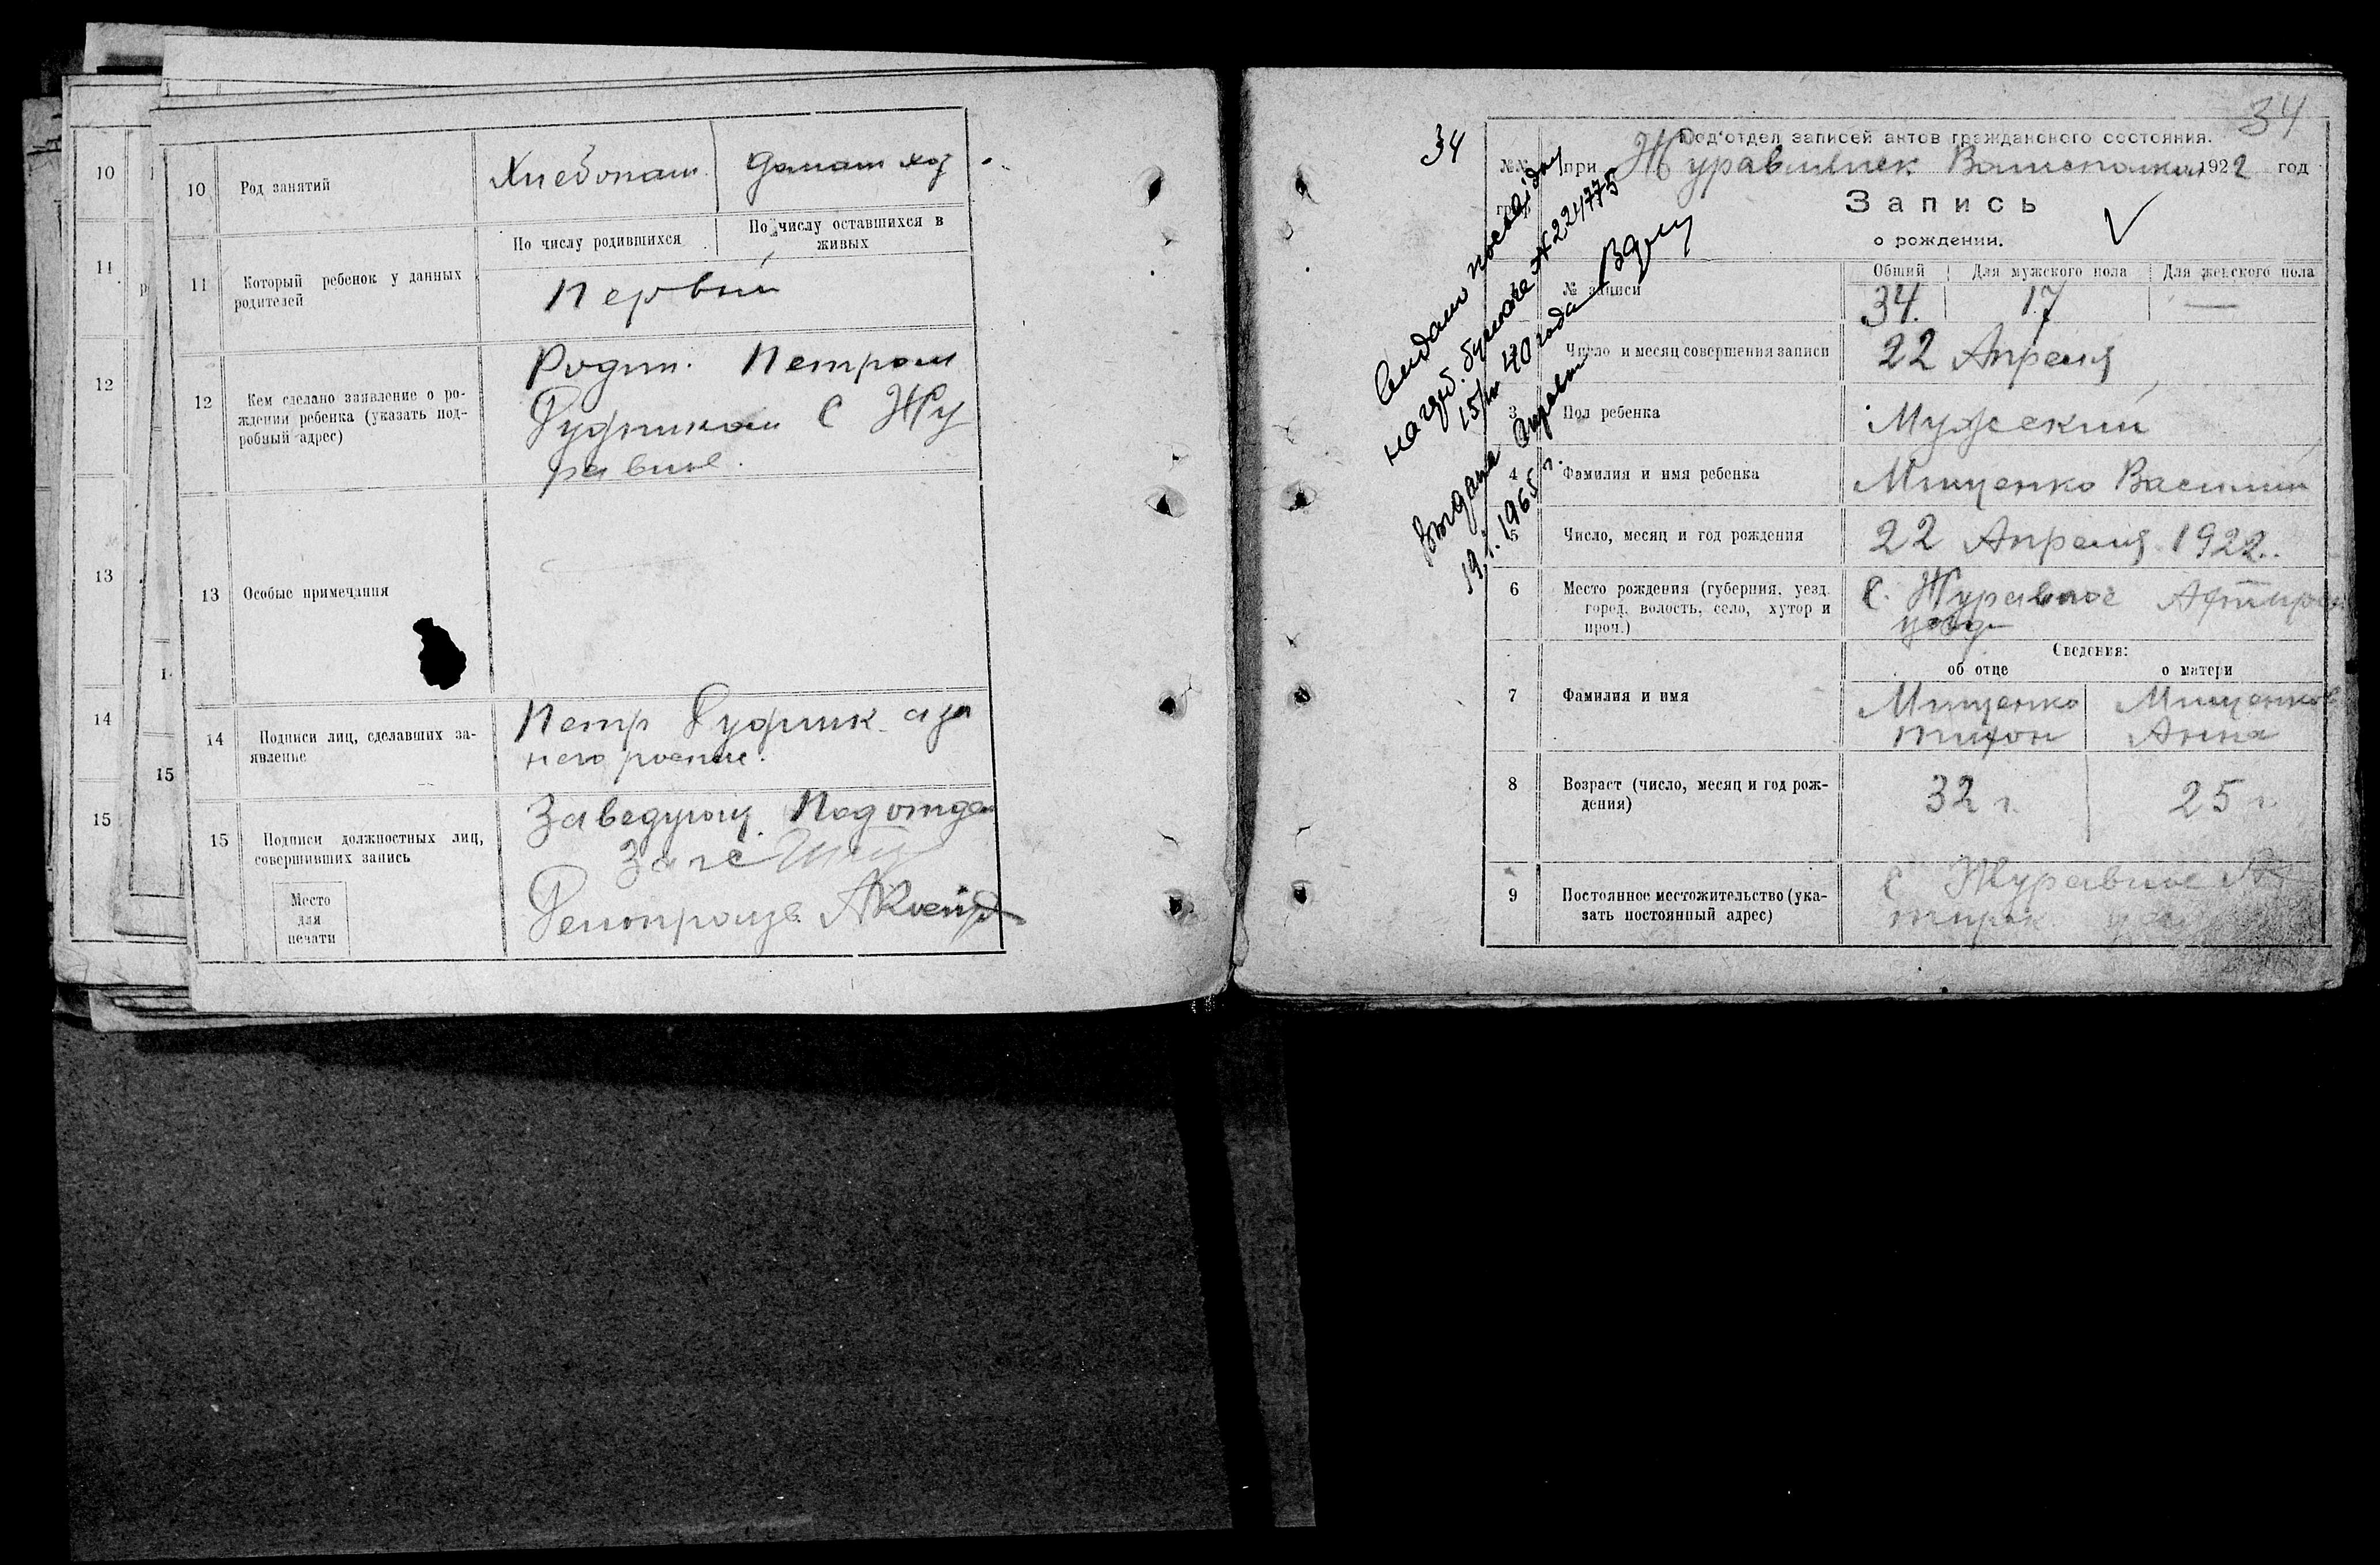 10
11
12
13
14
15
15
10 Род занятий
Хлебопаш. Домаш хоз
11 Который ребенок у данных
родителей
По числу родившихся
По числу оставшихся в
живых
Первый
12 Кем сделано заявление о ро-
ждении ребенка (указать под-
робный адрес)
Родит. Петром
Рудником С Жу
равное.
13 Особые примечания
14 Подписи лиц, сделавших за-
явление
Петр Рудник а за
него
15 Подписи должностных лиц,
совершивших запись
Заведующ. Подотде
Загс
Делопроизв.
Место
для
печати
34
34
Подотдел записей актов гражданского состояния.
при Журавлинск 1922 год
Запись
о рождении.
№ записи
Общий Для мужского пола Для женского пола
34. 17 —
Число и месяц совершения записи
22 Апреля
3 Пол ребенка
Мужский
4 Фамилия и имя ребенка
Мищенко Василий
5 Число, месяц и год рождения
22 Апреля 1922.
6 Место рождения (губерния, уезд
город, волость, село, хутор и
проч.)
С. Журавное
уезд
Сведения:
об отце о матери
7 Фамилия и имя
Мищенко
Тихон
Мищенкова
Анна
8 Возраст (число, месяц и год рож-
дения)
32 г. 25 г.
9 Постоянное местожительство (ука-
зать постоянный адрес)
С Журавное
№ 224775
40 года
19. 1. 1965 г.